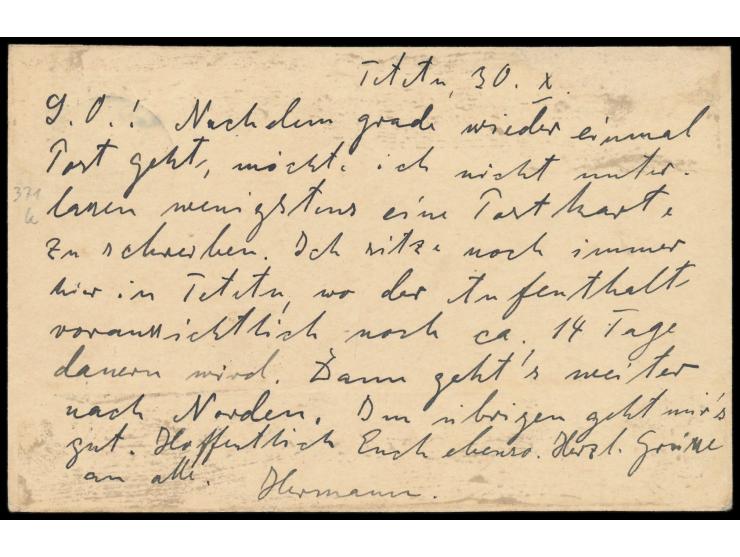 Tetetu, 30. X.
L. O.! Nachdem grade wieder einmal
Post geht, möchte ich nicht unter-
lassen wenigstens eine Postkarte
zu schreiben. Ich sitze noch immer
hier in Tetetu, wo der Aufenthalt
voraussichtlich noch ca. 14 Tage
dauern wird. Dann geht's weiter
nach Norden. Im übrigen geht mir's
gut. Hoffentlich Euch ebenso. Herzl. Grüsse
an alle. Hermann.
371